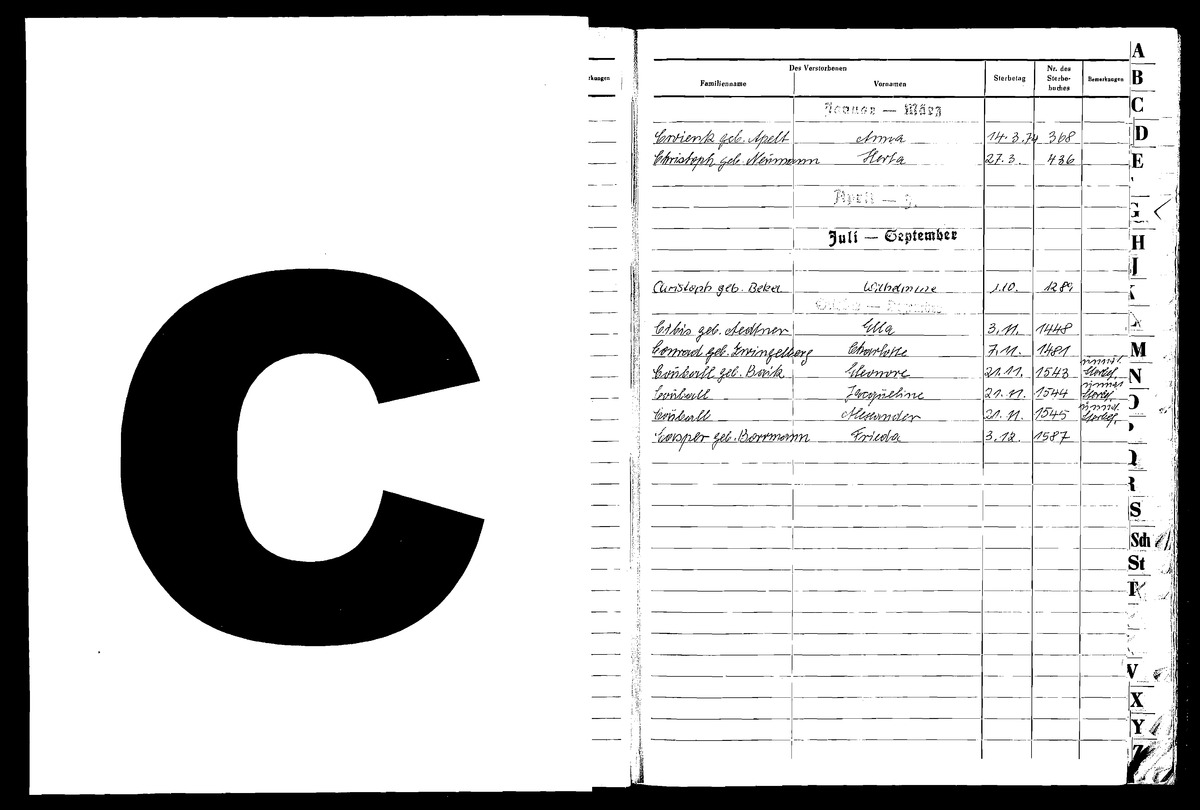 C
rkungen
Des Verstorbenen
Familienname Vornamen Sterbetag Nr. des Sterbe-buches Bemerkungen
Januar — März
geb. Apelt Anna 14.3.74 368
Christoph geb. Neumann Herta 27.3. 436
April —
Juli — September
Christoph geb. Wilhelmine 1.10. 1289
geb. Ella 3.11. 1448
Conrad geb. Zwingelberg Charlotte 7.11. 1481
geb. Eleonore 21.11. 1543
Jacqueline 21.11. 1544
Alexander 21.11. 1545
Casper geb. Borrmann Frieda 3.12. 1587
A
B
C
D
E
G
H
J
M
N
O
P
Q
R
S
Sch
St
T
V
X
Y
Z